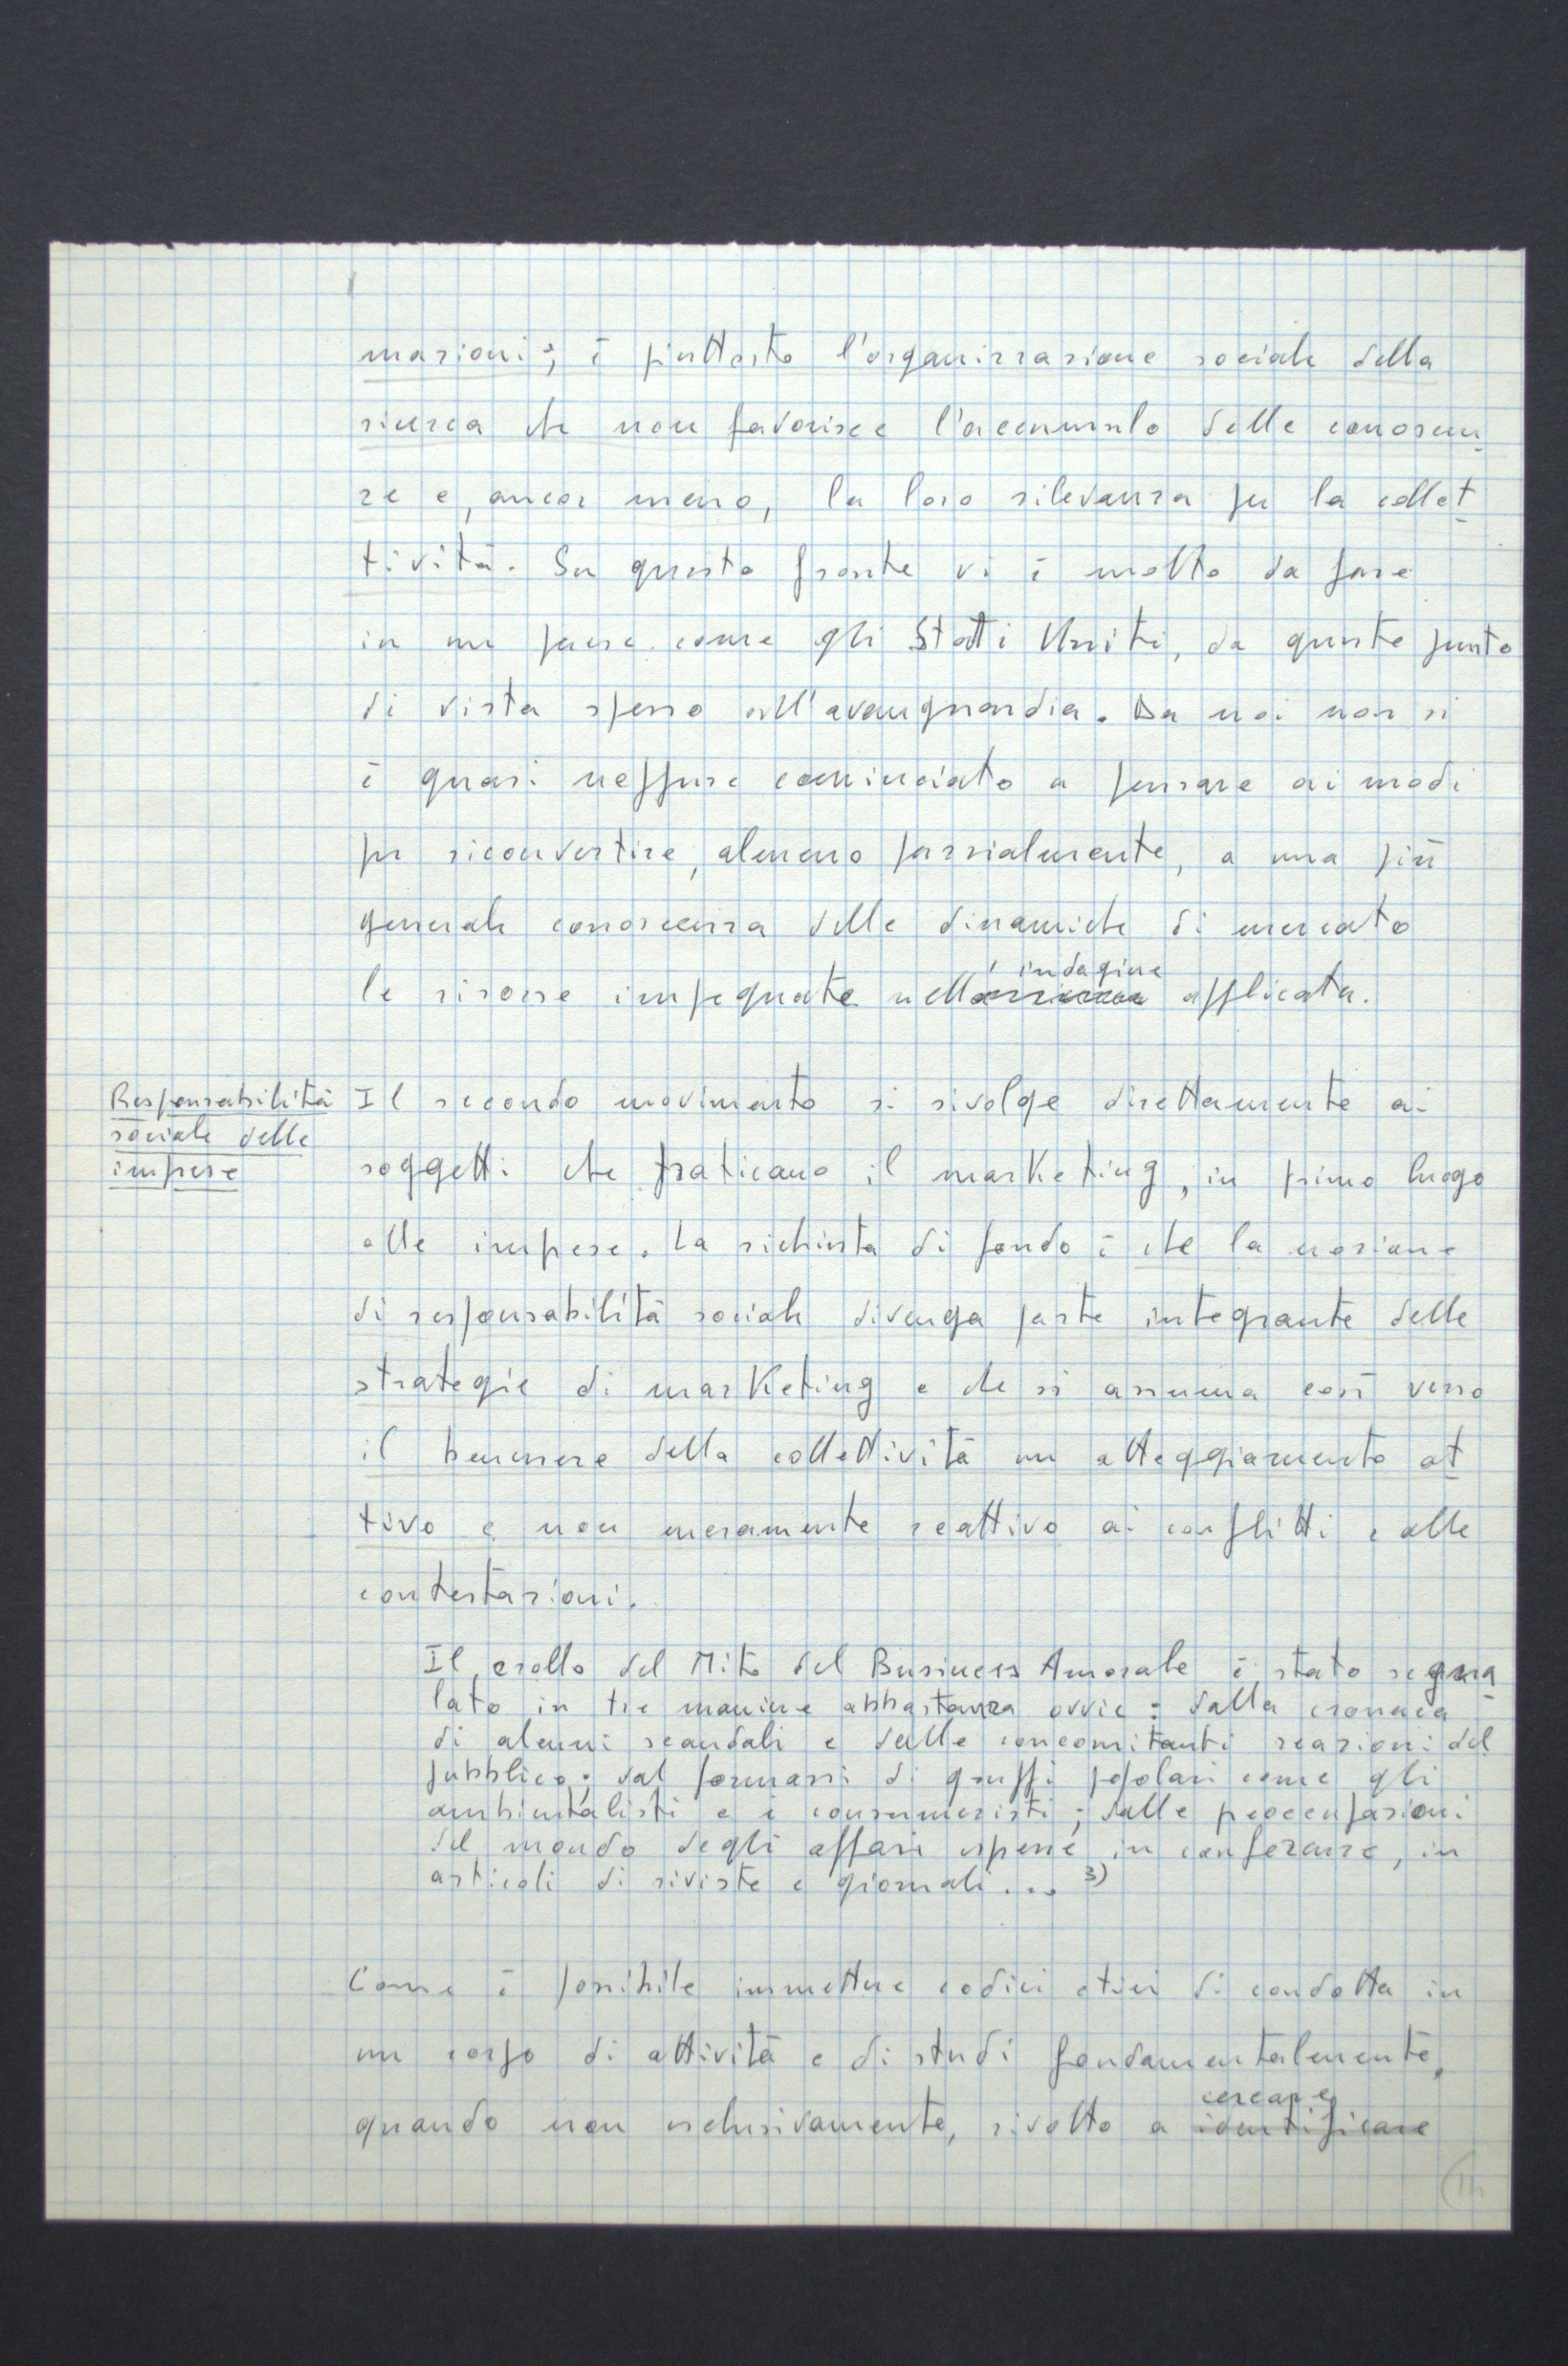 mazioni; è piuttosto l'organizzazione sociale della
ricerca che non favorisce l'accumulo delle conoscen
ze e, ancor meno, la loro rilevanza per la collet
tività. Su questo fronte vi è molto da fare
in un paese come gli Stati Uniti, da questo punto
di vista spesso all'avanguardia. Da noi non si
è quasi neppure cominciato a pensare ai modi
per riconvertire, almeno parzialmente, a una più
generale conoscenza delle dinamiche di mercato
le risorse impegnate nell'indagine applicata.
Responsabilità
sociale delle
imprese
Il secondo movimento si rivolge direttamente ai
soggetti che praticano il marketing, in primo luogo
alle imprese. La richiesta di fondo è che la nozione
di responsabilità sociale divenga parte integrante delle
strategie di marketing e che si assuma così verso
il benessere della collettività un atteggiamento at
tivo e non meramente reattivo ai conflitti e alle
contestazioni.
Il crollo del Mito del Business Amorale è stato segna
lato in tre maniere abbastanza ovvie: dalla cronaca
di alcuni scandali e dalle concomitanti reazioni del
pubblico; dal formarsi di gruppi popolari come gli
ambientalisti e i consumeristi; dalle preoccupazioni
del mondo degli affari espresse in conferenze, in
articoli di riviste e giornali... 3)
Come è possibile immettere codici etici di condotta in
un corpo di attività e di studi fondamentalmente,
quando non esclusivamente, rivolto a cercare identificare